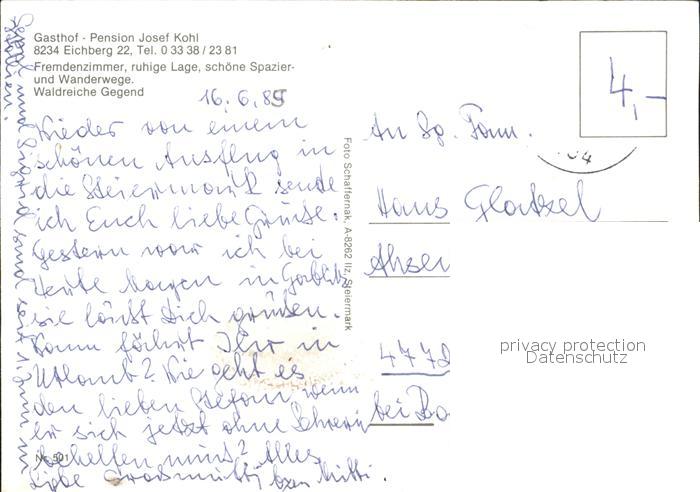 Gasthof - Pension Josef Kohl
8234 Eichberg 22, Tel. 0 33 38 / 23 81
Fremdenzimmer, ruhige Lage, schöne Spazier-
und Wanderwege.
Waldreiche Gegend
16. 6. 85
Wieder von einem
schönen Ausflug in
die Steiermark sende
ich Euch liebe Grüße.
Gestern war ich bei
Herta Mayen in Gablitz
sie läßt Dich grüßen.
Wann fährt Ihr in
Urlaub? Wie geht es
den lieben Stefan, wenn
Er sich jetzt ohne
behelfen muss? Alles
Liebe Grossmutti bzw. Mutti.
Nr. 501
und sind seit 1. Juni in
Italien.
Foto Schaffernak, A-8262 Ilz, Steiermark
4,-
04
An Sg. Fam.
Hans Glatzel
4772
bei
privacy protection
Datenschutz